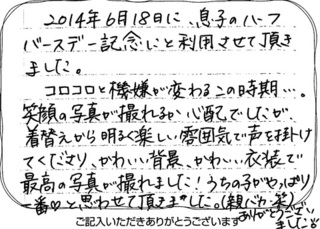 2014年6月18日に、息子のハーフ
バースデー記念にと利用させて頂き
ました。
コロコロと機嫌が変わるこの時期…。
笑顔の写真が撮れるか心配でしたが、
着替えから明るく楽しい雰囲気で声を掛け
てくださり、かわいい背景、かわいい衣装で
最高の写真が撮れました！うちの子がやっぱり
一番♡と思わせて頂きました。(親バカ笑)
ありがとうござい
ました
ご記入いただきありがとうございます